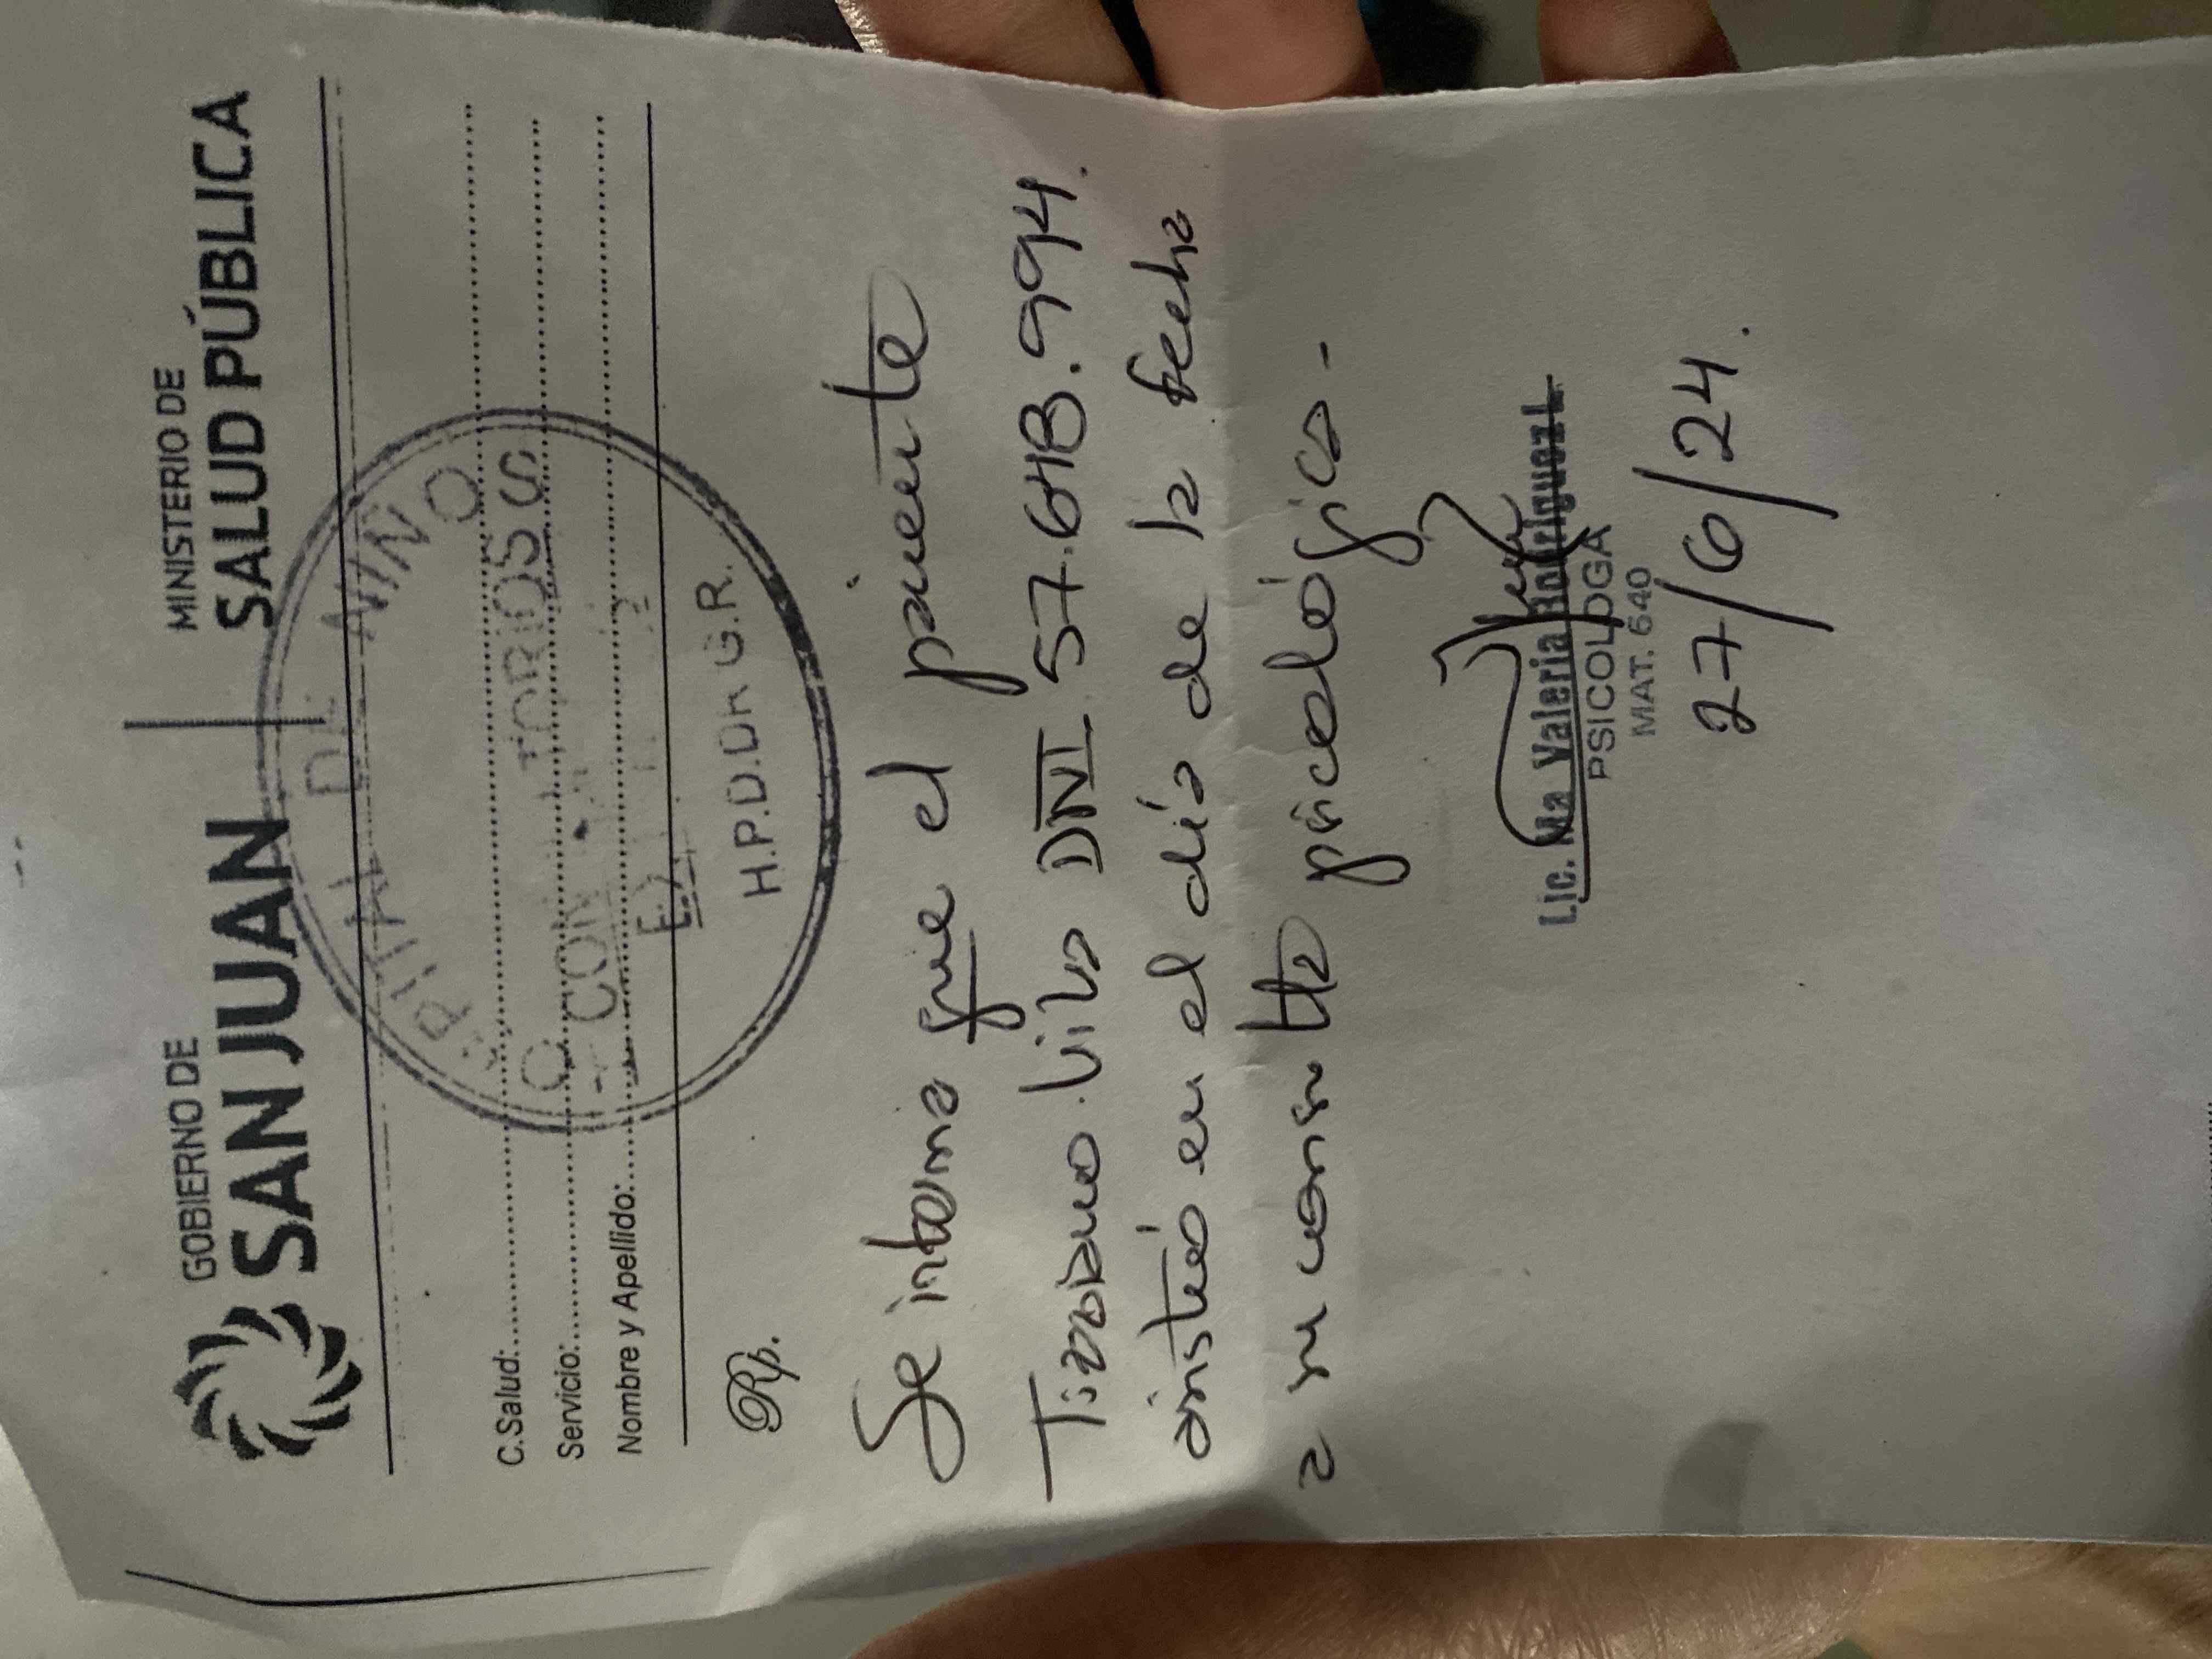 GOBIERNO DE
SAN JUAN
MINISTERIO DE
SALUD PÚBLICA
C.Salud:
Servicio:
Nombre y Apellido:
DEL NIÑO
H.P.D.Dr. G.R.
Rp.
Se informa que el paciente
Tiziano Vila DNI 57.648.994.
asistió en el día de la fecha
a su consulta psicológica -
Lic. Ma Valeria Rodriguez L
PSICOLOGA
MAT. 640
27/6/24.